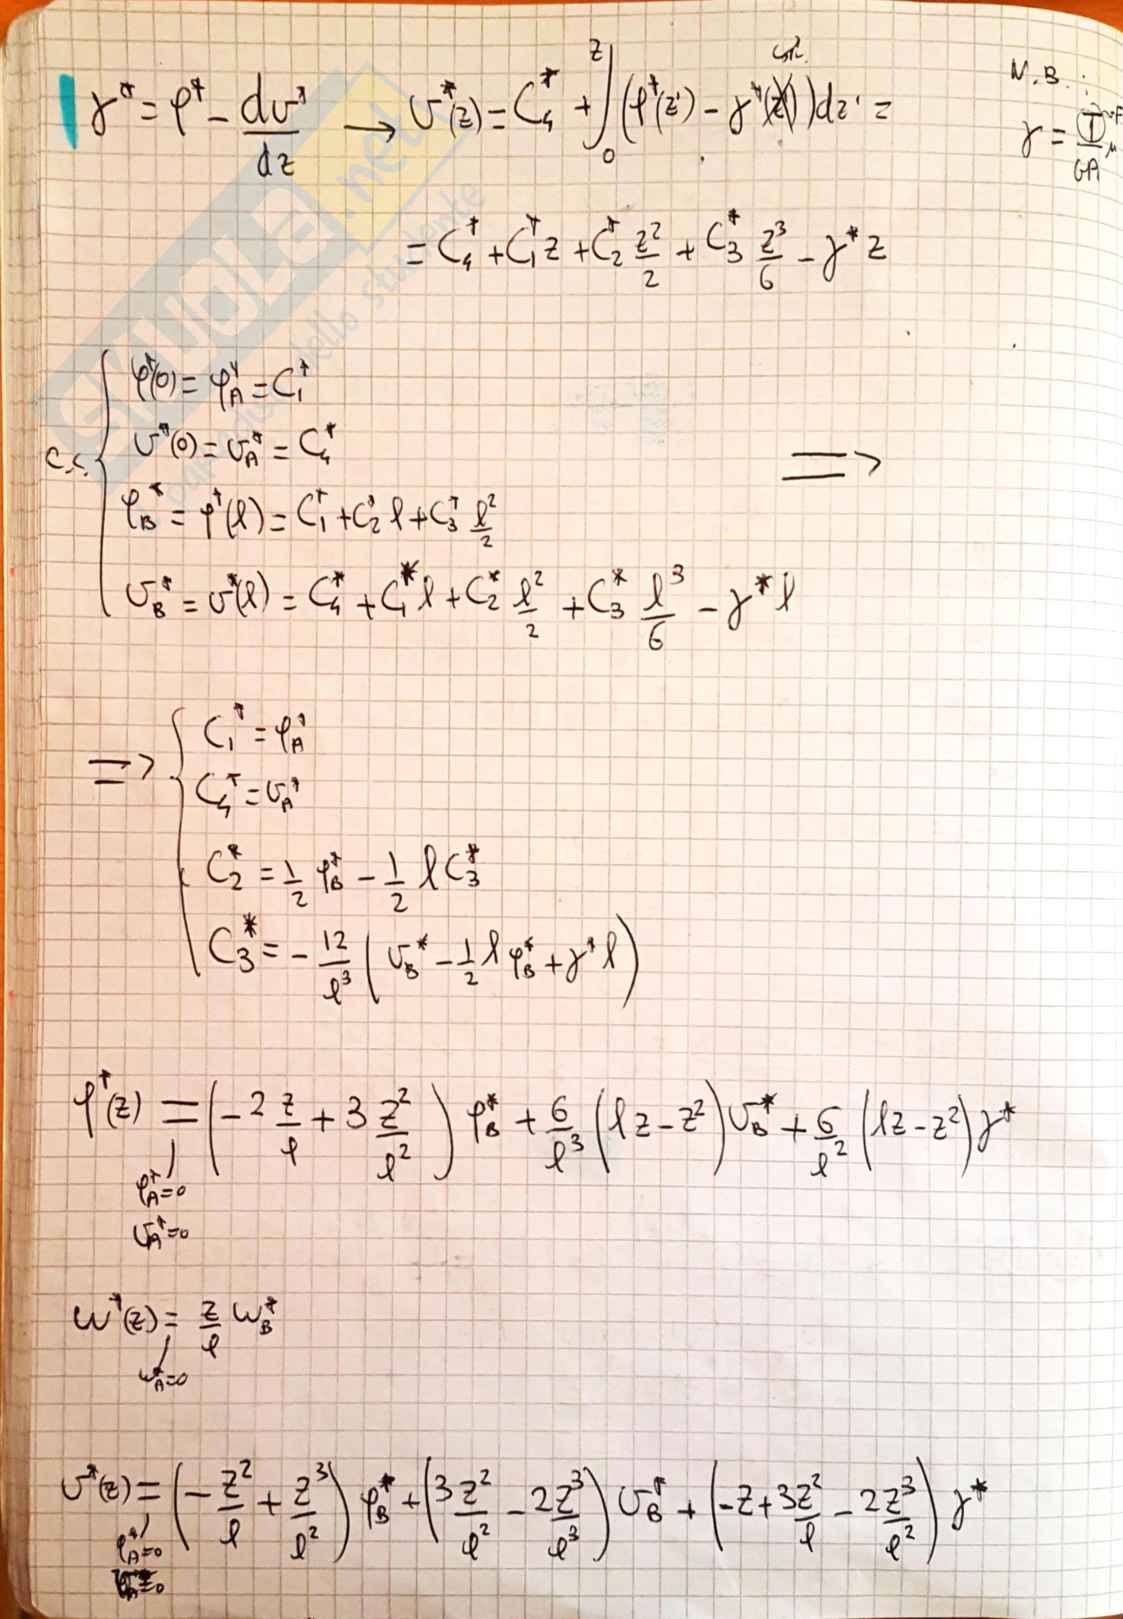 γ* = φ* - dv*/dz → v*(z) = C₄* + ∫₀ᶻ (φ*(z') - γ*(z'))dz' =
cost.
N.B.:
γ = T/GA
= C₄* + C₁* z + C₂* z²/2 + C₃* z³/6 - γ* z
SKUOLA.net
φ*(0) = φ_A* = C₁*
v*(0) = v_A* = C₄*
C.C.
⟹
φ_B* = φ*(l) = C₁* + C₂* l + C₃* l²/2
v_B* = v*(l) = C₄* + C₁* l + C₂* l²/2 + C₃* l³/6 - γ* l
C₁* = φ_A*
⟹
C₄* = v_A*
C₂* = 1/2 φ_B* - 1/2 l C₃*
C₃* = - 12/l³ (v_B* - 1/2 l φ_B* + γ* l)
φ*(z) = (-2 z/l + 3 z²/l²) φ_B* + 6/l³ (lz - z²) v_B* + 6/l² (lz - z²) γ*
φ_A* = 0
v_A* = 0
w*(z) = z/l w_B*
w_A* = 0
v*(z) = (- z²/l + z³/l²) φ_B* + (3 z²/l² - 2 z³/l³) v_B* + (-z + 3 z²/l - 2 z³/l²) γ*
φ_A* = 0
v_A* = 0